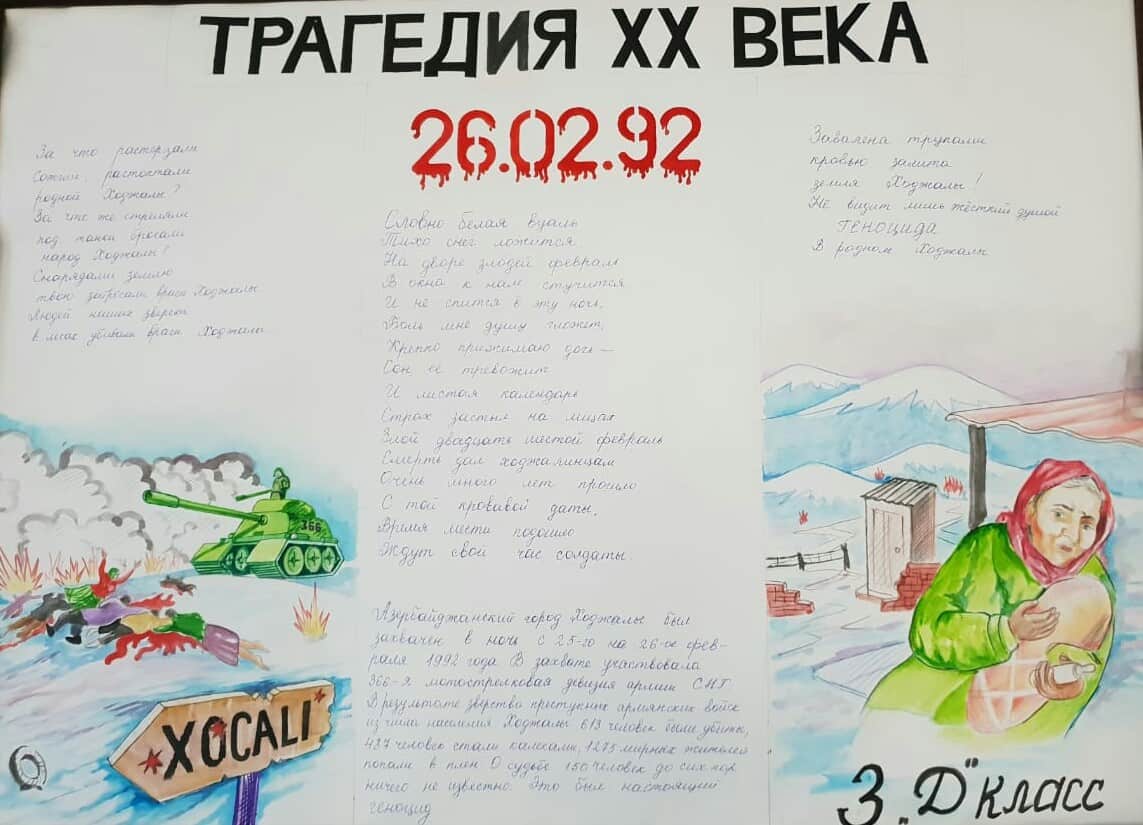 ТРАГЕДИЯ XX ВЕКА
26.02.92
За что растерзали
Сотни, растоптали
родной Ходжалы?
За что же стреляли
под танки бросали
народ Ходжалы?
Снарядами землю
твою забросали враги Ходжалы
Людей наших зверски
в лесах убивали враги Ходжалы
Словно белая вуаль
Тихо снег ложится
На дворе злодей февраль
В окна к нам стучится
И не спится в эту ночь,
Боль мне душу гложет,
Крепко прижимаю дочь —
Сон её тревожит
И листая календарь
Страх застыл на лицах
Злой двадцать шестой февраль
Смерть дал ходжалинцам
Очень много лет прошло
С той кровивой даты,
Время мести подошло
Ждут свой час солдаты.
Азербайджанский город Ходжалы был
захвачен в ночь с 25-го на 26-ое фев-
раля 1992 года В захвате участвовала
366-я мотострелковая девизия армии СНГ.
В результате зверства преступных армянских войск
из числа населения Ходжалы 613 человек были убиты,
487 человек стали калеками, 1275 мирных жителей
попали в плен О судьбе 150 человек до сих пор
ничего не известно. Это был настоящий
геноцид
Завалена трупами
кровью залита
земля Ходжалы!
Не видит лишь жёсткий душой
ГЕНОЦИДА
В родном Ходжалы
366
XOCALI
3 „D" класс